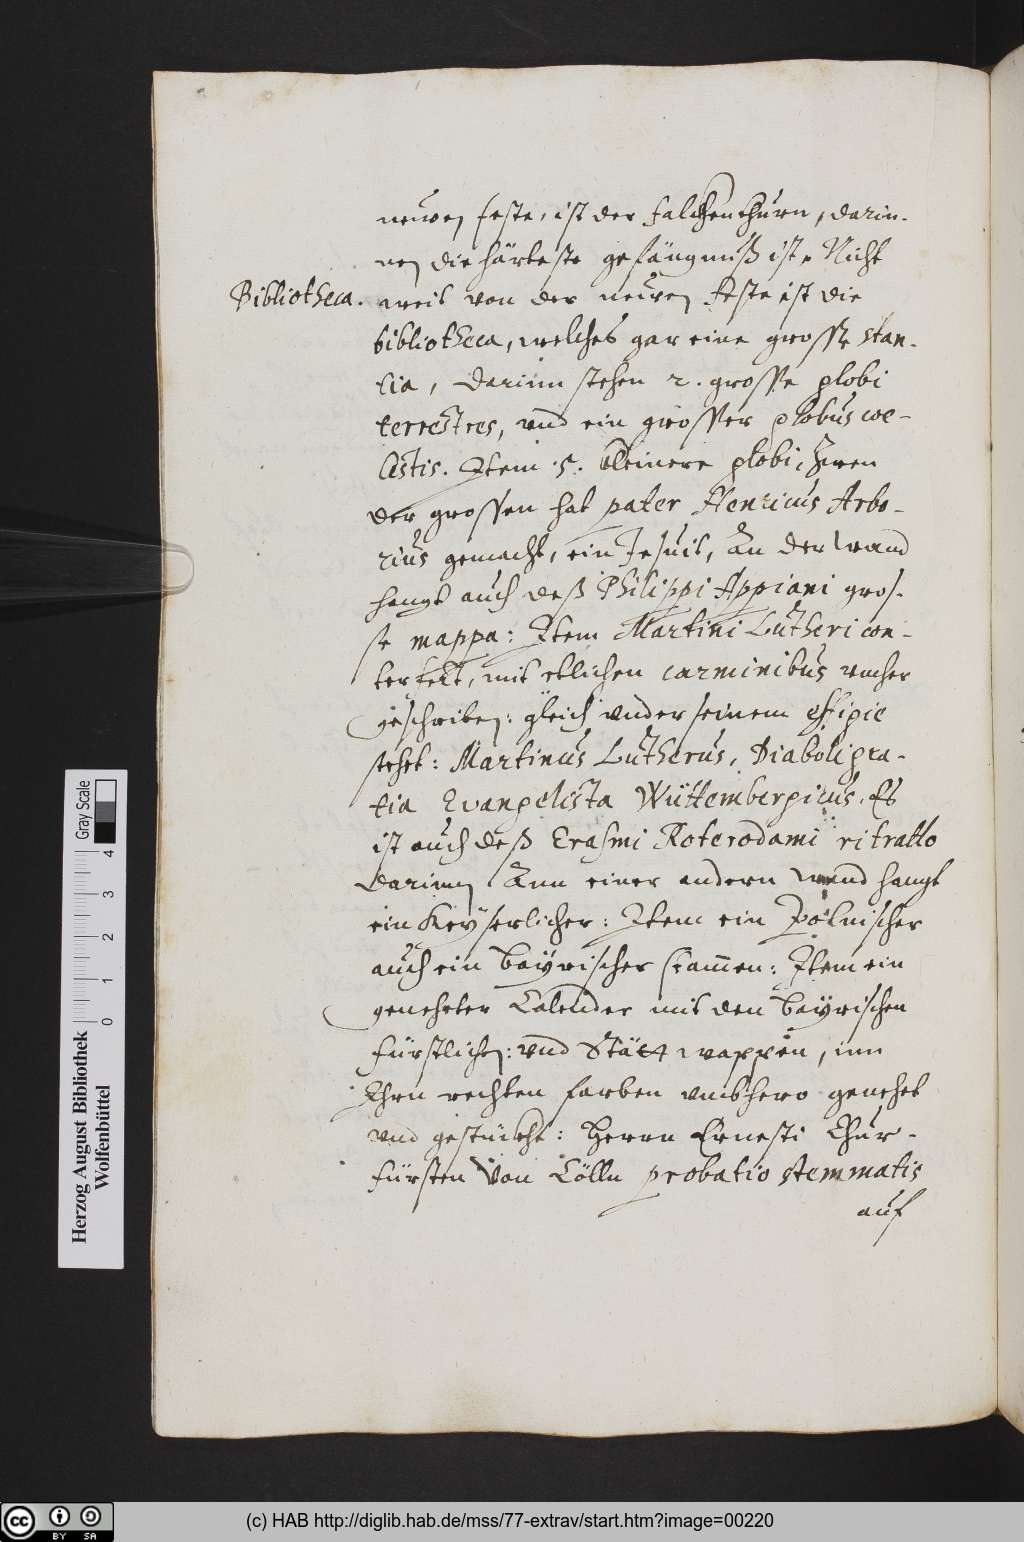 neuwen feste, ist der falckhenthurn, darin-
nen die härteste gefängnuß ist. Nicht
Bibliotheca.
weit von der neuwen feste ist die
bibliotheca, welches gar eine grosse stan-
tia, darinn stehen 2. grosse globi
terrestres, vnd ein grosser globus coe-
lestis. Item .5. kleinere globi, Zwen
der grossen hat pater Henricus Arbo-
rius gemacht, ein Jesuit, An der wand
hangt auch deß Philippi Appiani gros-
se mappa: Item Martini Lutheri con-
terfekt, mit etlichen carminibus vmher
geschriben: gleich vnder seinem effigie
stehet: Martinus Lutherus, Diaboli gra-
tia Evangelista Wüttembergicus. Es
ist auch deß Erasmi Roterodami ritratto
darinn Ann einer andern wand hangt
ein Keÿserlicher: Item ein Polnischer
auch ein baÿrischer stammen: Item ein
geneheter Calender mit den baÿrischen
fürstlichen: vnd Stätt wappen, inn
Ihrn rechten farben vmbhero genehet
vnd gestückht: Herrn Ernesti Chur-
fürsten von Cölln probatio stemmatis
auf
Herzog August Bibliothek
Wolfenbüttel
0 1 2 3 4
Gray Scale
cc BY SA
(c) HAB http://diglib.hab.de/mss/77-extrav/start.htm?image=00220